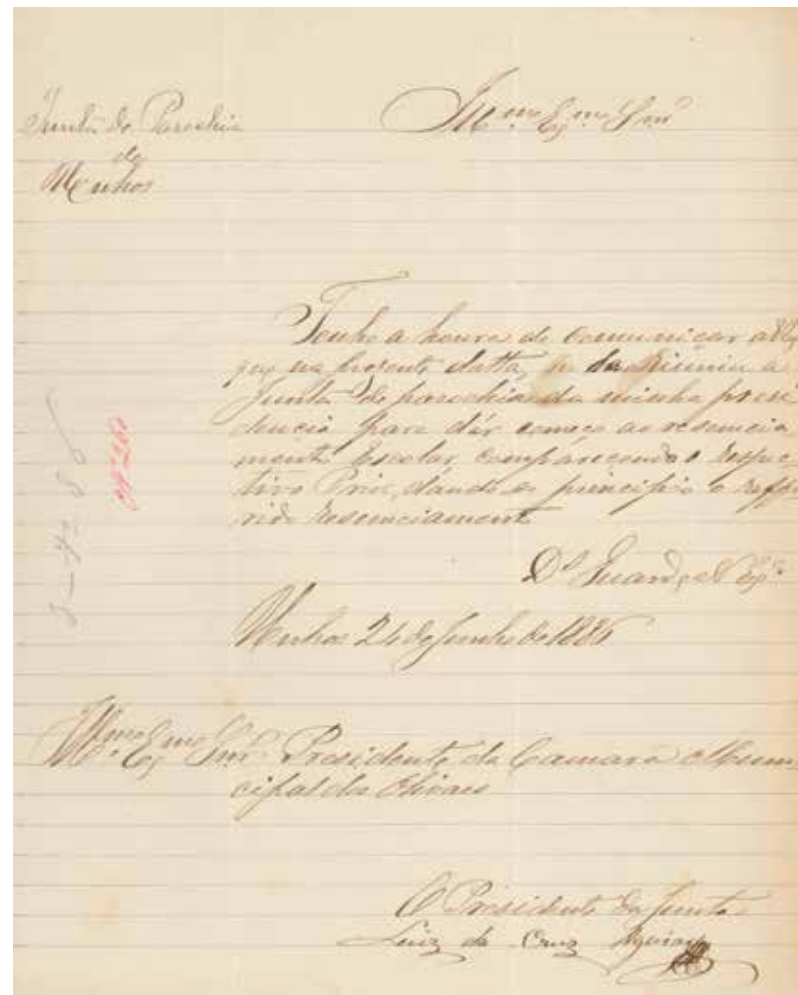 Junta de Parochia
de
Unhos
Ill.mo Ex.mo Snr.
Tenho a honra de comunicar a V Ex
que na prezente datta, se Riuniu a
Junta de parochia da minha prezi
dencia para dár começo ao resencia
mento Escolar comparecendo o respec
tivo Prior, dando-se principio o reffe
rido resenciamento
D.s Guarde a V Ex.a
Unhos 24 de Junho de 1886
Ill.mo Ex.mo Snr. Presidente da Camara Muni
cipal dos Olivaes
O Presidente da Junta
Luiz da Cruz Aguiar